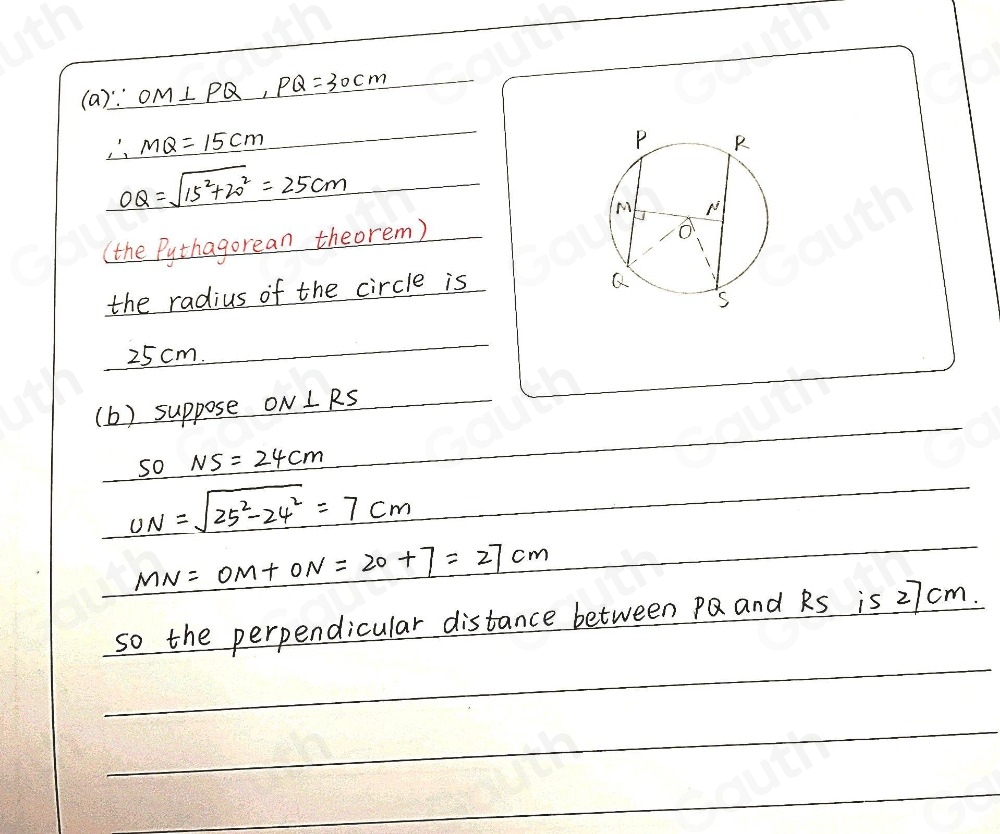 (a)∵ OM ⊥ PQ , PQ = 30cm
∴ MQ = 15cm
OQ = √15²+20² = 25cm
(the Pythagorean theorem)
the radius of the circle is
25cm.
P
R
M
N
O
Q
S
(b) suppose ON ⊥ RS
so NS = 24cm
ON = √25²-24² = 7 cm
MN = OM + ON = 20 + 7 = 27 cm
so the perpendicular distance between PQ and RS is 27cm.
Gauth